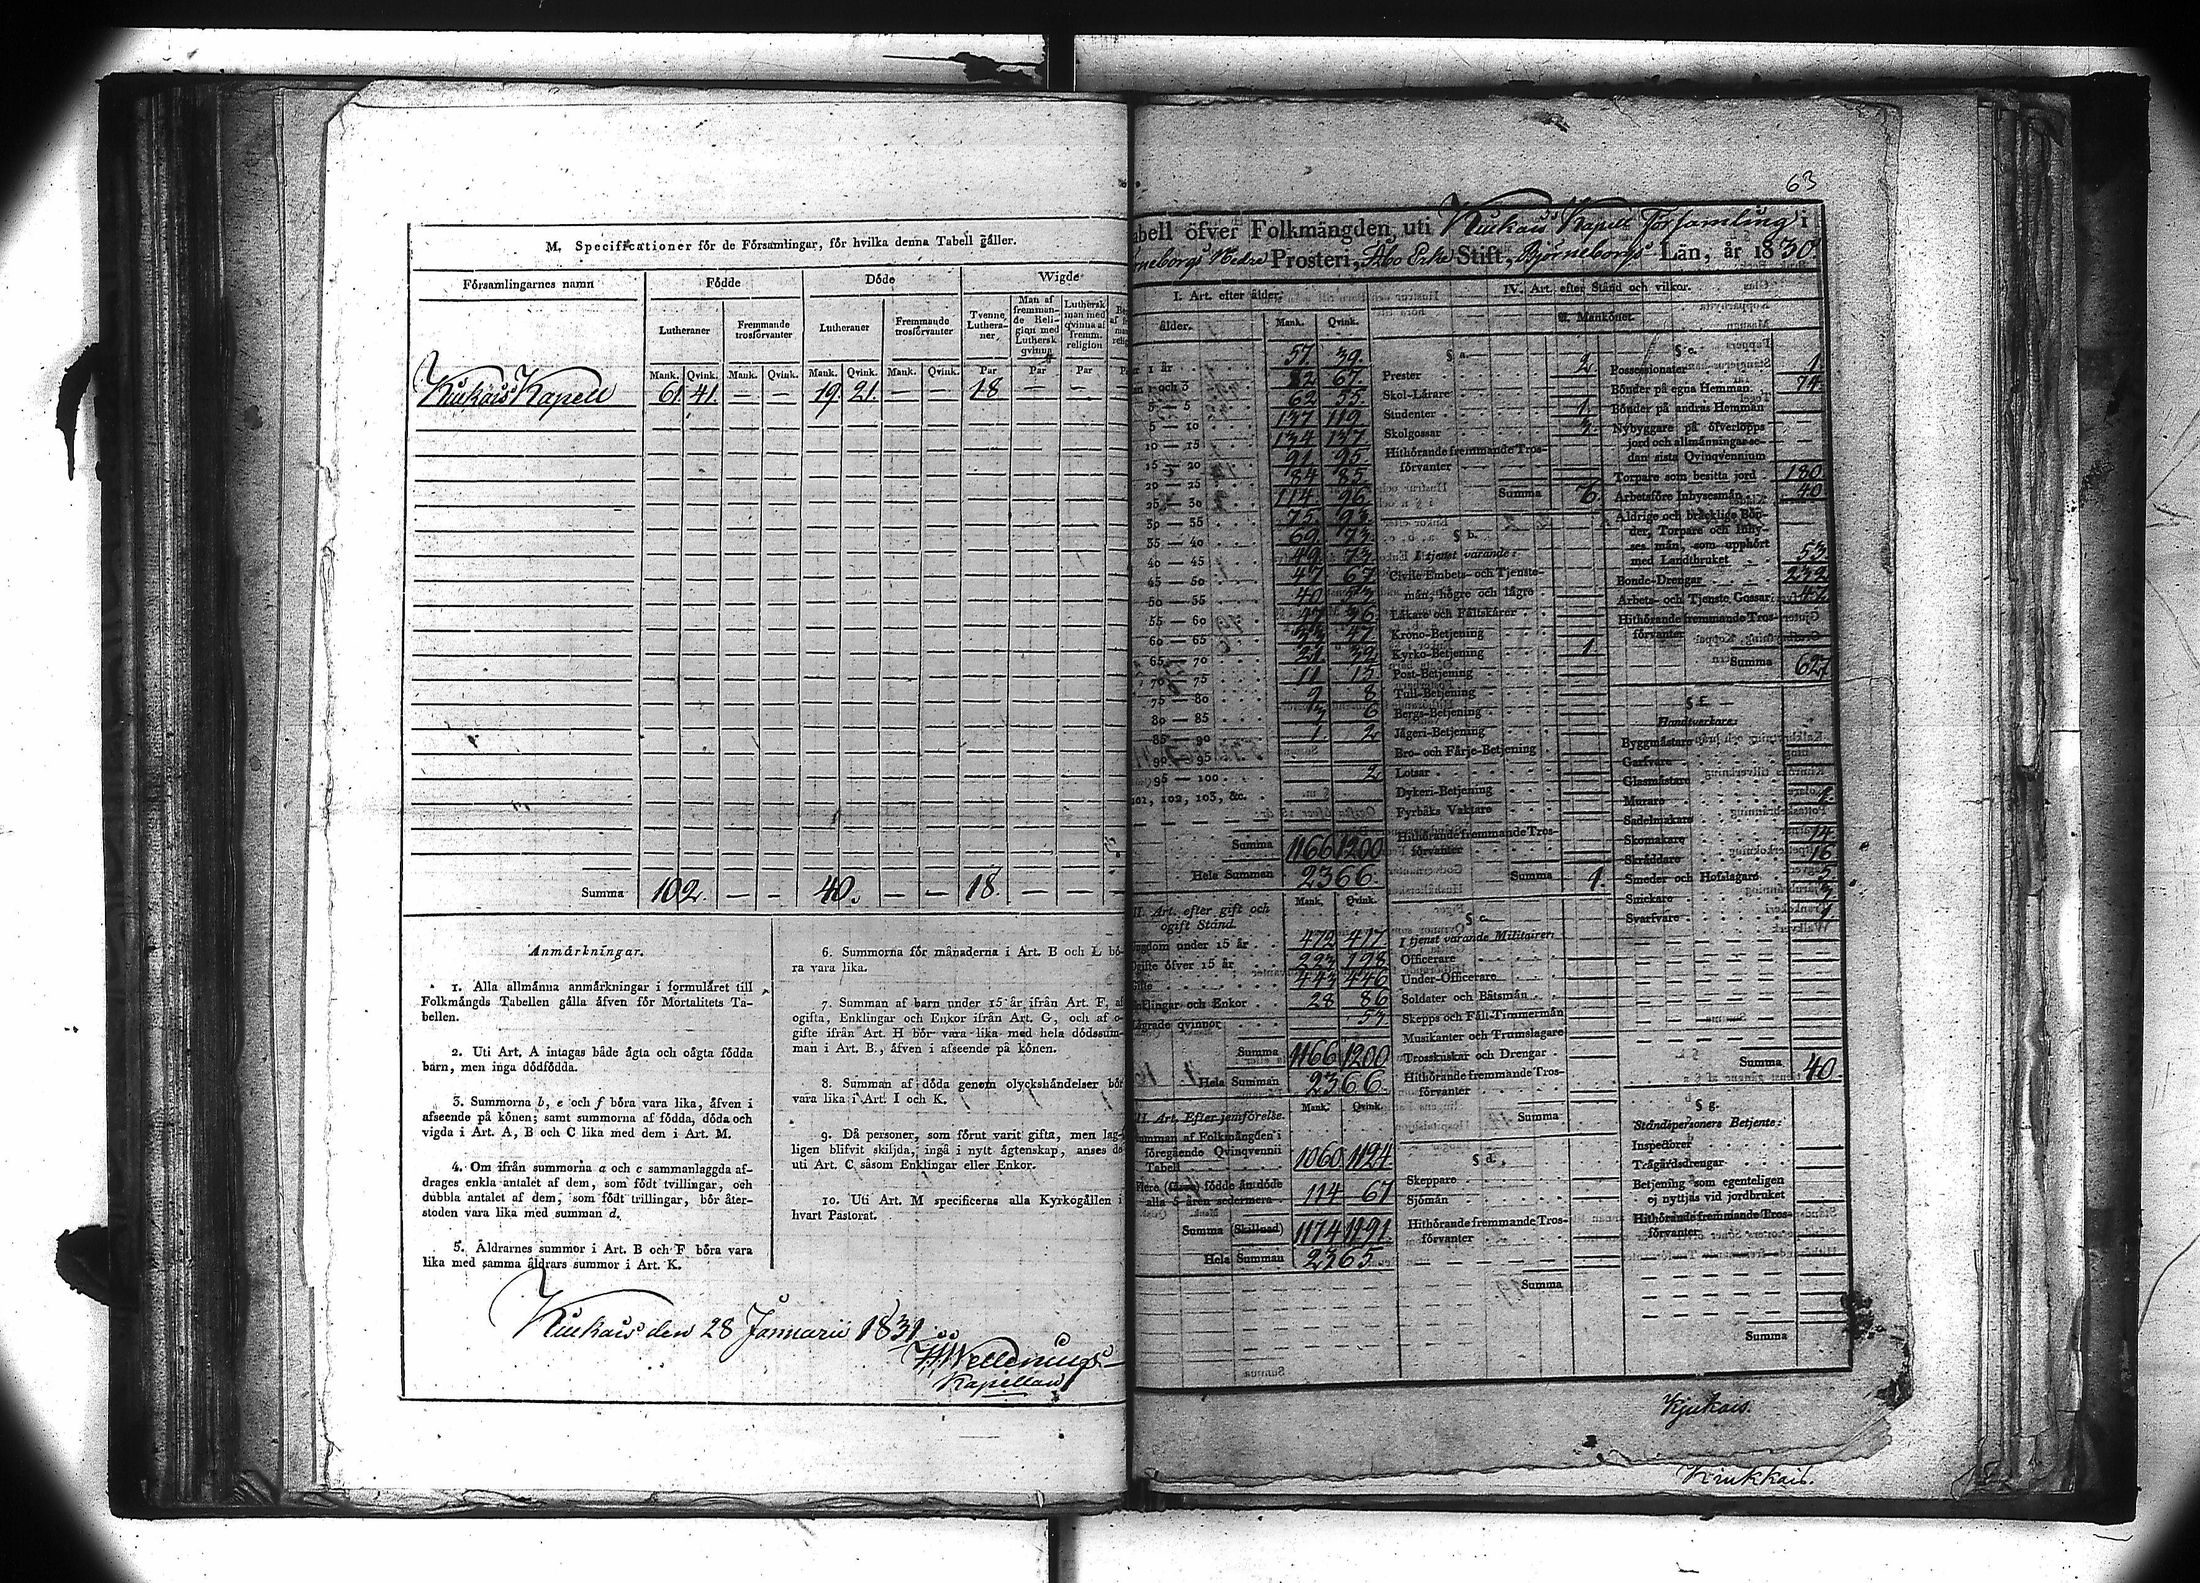 M. Specificationer för de Församlingar, för hvilka denna Tabell gäller.
Församlingarnes namn Födde Döde Wigde
Lutheraner Fremmande trosförvanter Lutheraner Fremmande trosförvanter Tvenne Lutheraner Man af fremmande Religion med Luthersk qvinna Luthersk man med qvinna af fremm. religion
Mank. Qvink. Mank. Qvink. Mank. Qvink. Mank. Qvink. Par Par Par
Kiukais Kapell 61. 41. — — 19. 21. — — 18 — —
Summa 102. — — 40. — — 18. — —
Anmärkningar.
1. Alla allmänna anmärkningar i formuläret till
Folkmängds Tabellen gälla äfven för Mortalitets Ta-
bellen.
2. Uti Art. A intagas både ägta och oägta födda
barn, men inga dödfödda.
3. Summorna b, e och f böra vara lika, äfven i
afseende på könen; samt summorna af födda, döda och
vigda i Art. A, B och C lika med dem i Art. M.
4. Om ifrån summorna a och c sammanlagda af-
drages enkla antalet af dem, som födt tvillingar, och
dubbla antalet af dem, som födt trillingar, bör åter-
stoden vara lika med summan d.
5. Äldrarnes summor i Art. B och F böra vara
lika med samma äldrars summor i Art. K.
6. Summorna för månaderna i Art. B och L bö-
ra vara lika.
7. Summan af barn under 15 år ifrån Art. F, af
ogifta, Enklingar och Enkor ifrån Art. G, och af o-
gifte ifrån Art. H bör vara lika med hela dödssum-
man i Art. B., äfven i afseende på könen.
8. Summan af döda genom olyckshändelser bör
vara lika i Art. I och K.
9. Då personer, som förut varit gifta, men lag-
ligen blifvit skiljda, ingå i nytt ägtenskap, anses de
uti Art. C såsom Enklingar eller Enkor.
10. Uti Art. M specificeras alla Kyrkogällen i
hvart Pastorat.
Kiukais den 28 Januarii 1831
Kapellan
63
abell öfver Folkmängden, uti Kiukais Kapells Församling i
rneborgs Nedre Prosteri, Åbo Erke Stift, Björneborgs Län, år 1830.
I. Art. efter ålder.
ålder. Mank. Qvink.
1 år 57. 39.
1 och 3 82 67.
3 — 5 62 55.
5 — 10 137 119
10 — 15 134 137
15 — 20 91 95
20 — 25 84 85
25 — 30 114. 96
30 — 35 75 93
35 — 40 69. 73
40 — 45 49. 73
45 — 50 47 67
50 — 55 40
55 — 60 36
60 — 65 47
65 — 70 21. 32
70 — 75 11 15
75 — 80 9 8
80 — 85 3 6
85 — 90 1 2
90 — 95
95 — 100 2
101, 102, 103, &c.
Summa 1166 1200
Hela Summan 2366.
II. Art. efter gift och
ogift Stånd. Mank. Qvink.
ngdom under 15 år 472 417
Ogifte öfver 15 år 223 198
Gifte 443 446
nklingar och Enkor 28 86
ägrade qvinnor 53
Summa 1166 1200
Hela Summan 2366.
III. Art. Efter jemförelse. Mank. Qvink.
Summan af Folkmängden i
föregående Qvinqvennii
Tabell 1060 1124
Flere födde än döde
alla 5 åren sedermera 114 67
Summa (Skillnad) 1174 1191
Hela Summan 2365
IV. Art. efter Stånd och vilkor.
A. Mankönet.
§ a.
Prester 2
Skol-Lärare
Studenter 1
Skolgossar 3
Hithörande fremmande Tros-
förvanter
Summa 6.
§ b.
I tjenst varande:
Civile Embets- och Tjenste-
män, högre och lägre
Läkare och Fältskärer
Krono-Betjening
Kyrko-Betjening 1
Post-Betjening
Tull-Betjening
Bergs-Betjening
Jägeri-Betjening
Bro- och Färje-Betjening
Lotsar
Dykeri-Betjening
Fyrbåks Vaktare
Hithörande fremmande Tros-
förvanter
Summa 1.
§ c.
I tjenst varande Militairer:
Officerare
Under-Officerare
Soldater och Båtsmän
Skepps och Fält-Timmermän
Musikanter och Trumslagare
Trosskuskar och Drengar
Hithörande fremmande Tros-
förvanter
Summa
§ d.
Skeppare
Sjömän
Hithörande fremmande Tros-
förvanter
Summa
§ e.
Possessionater 1.
Bönder på egna Hemman 74.
Bönder på andras Hemman
Nybyggare på öfverlopps
jord och allmänningar se-
dan sista Qvinqvennium
Torpare som besitta jord 180
Arbetsföre Inhysesmän 40
Åldrige och bräcklige Bön-
der, Torpare och Inhy-
ses män, som upphört
med Landtbruket 53
Bonde-Drengar 232
Arbets- och Tjenste Gossar 42
Hithörande fremmande Tros-
förvanter
Summa 627
§ f.
Handtverkare:
Byggmästare
Garfvare
Glasmästare
Murare 1.
Sadelmakare
Skomakare 14
Skräddare 16
Smeder och Hofslagare 5
Snickare 3
Svarfvare 1
Summa 40
§ g.
Ståndspersoners Betjente:
Inspectorer
Trägårdsdrengar
Betjening som egenteligen
ej nyttjas vid jordbruket
Hithörande fremmande Tros-
förvanter
Summa
Kjukais.
Kiukkais.